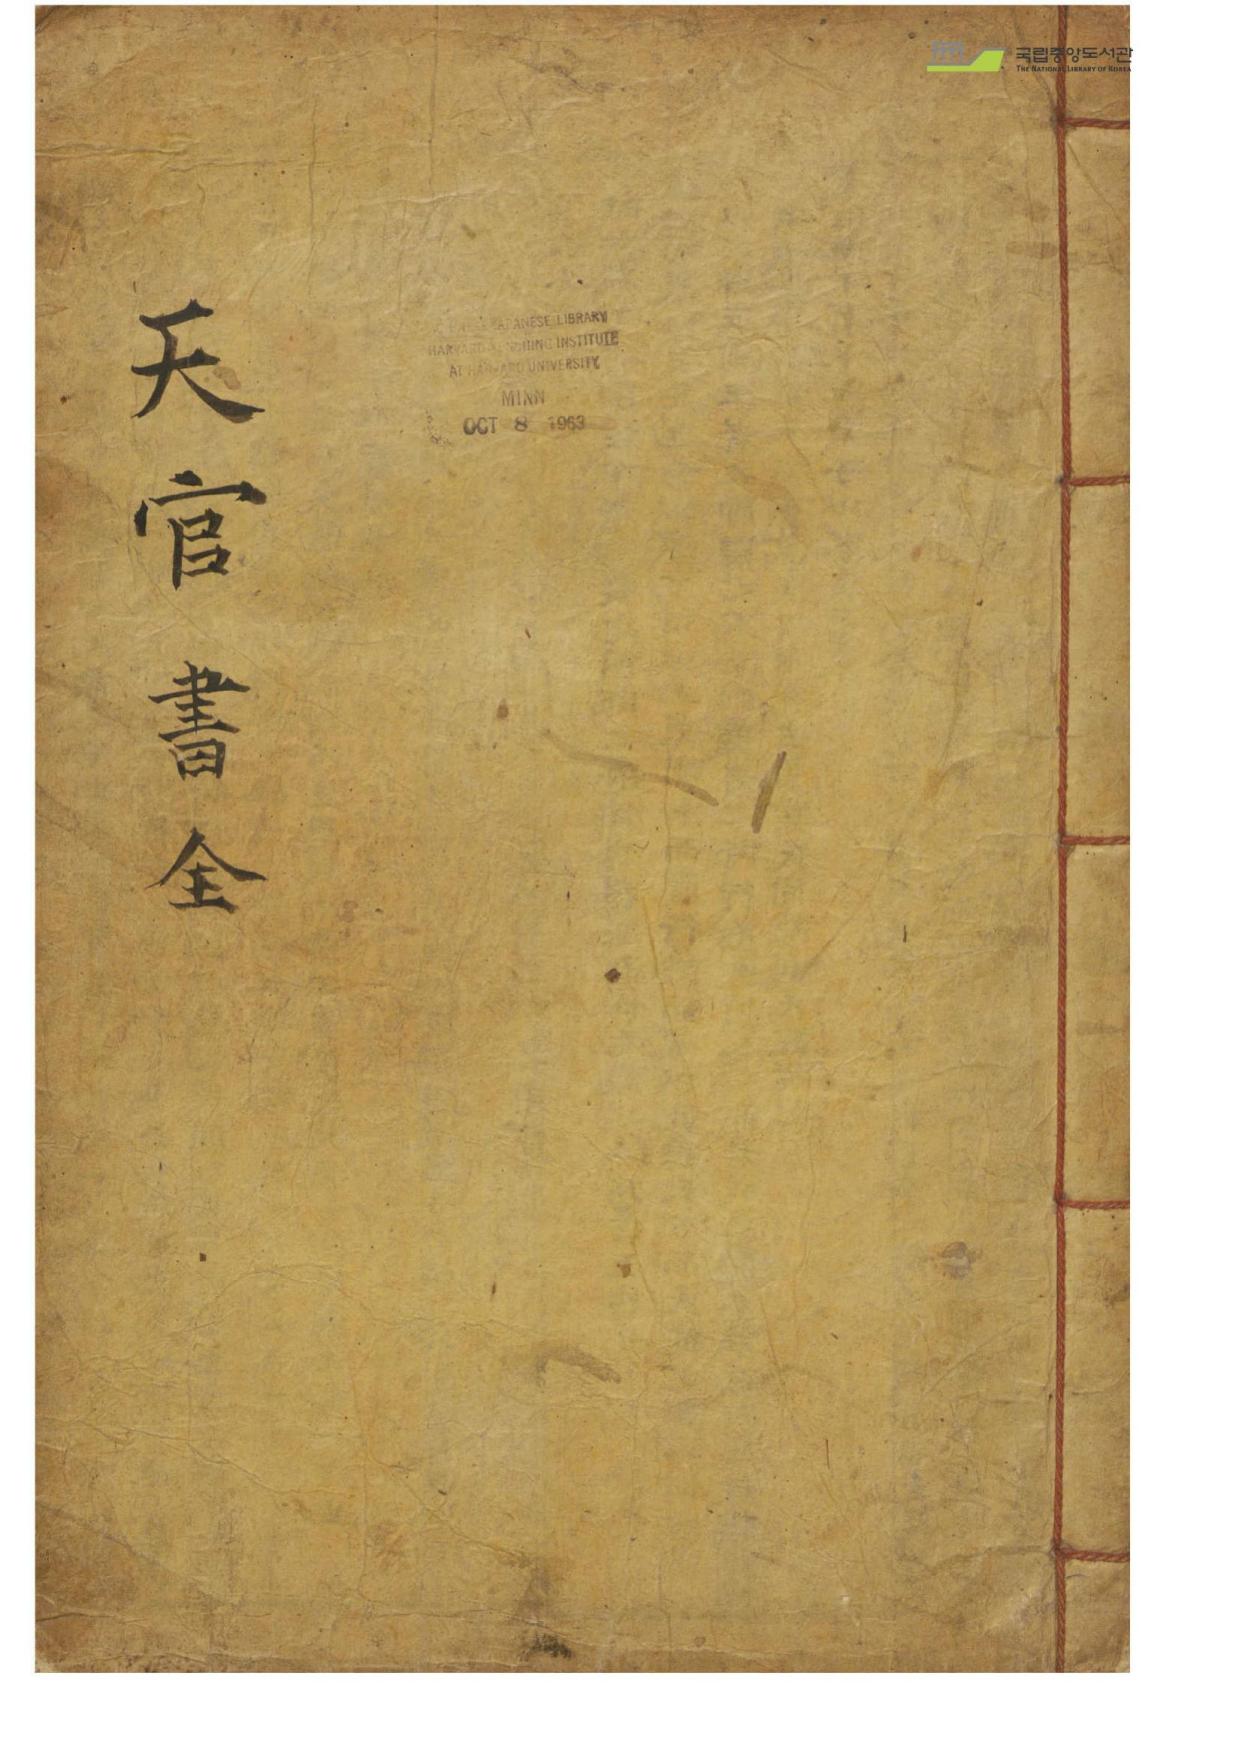 국립중앙도서관
THE NATIONAL LIBRARY OF KOREA
天官書全
JAPANESE LIBRARY
HARVARD INSTITUTE
AT HARVARD UNIVERSITY
OCT 8 1963